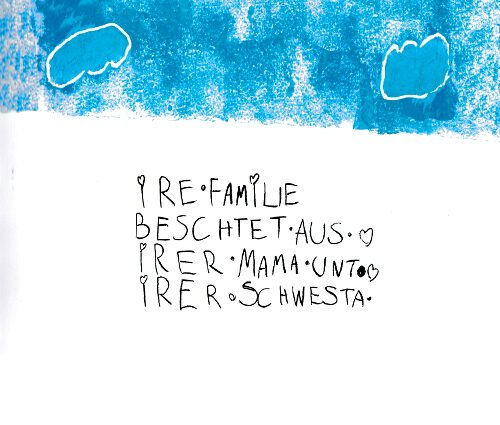 IRE·FAMILIE
BESCHTET·AUS·♡
IRER·MAMA·UNT•♡
IRER·SCHWESTA·